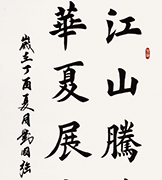 江山騰
華夏展
歲在丁酉夏月劉明